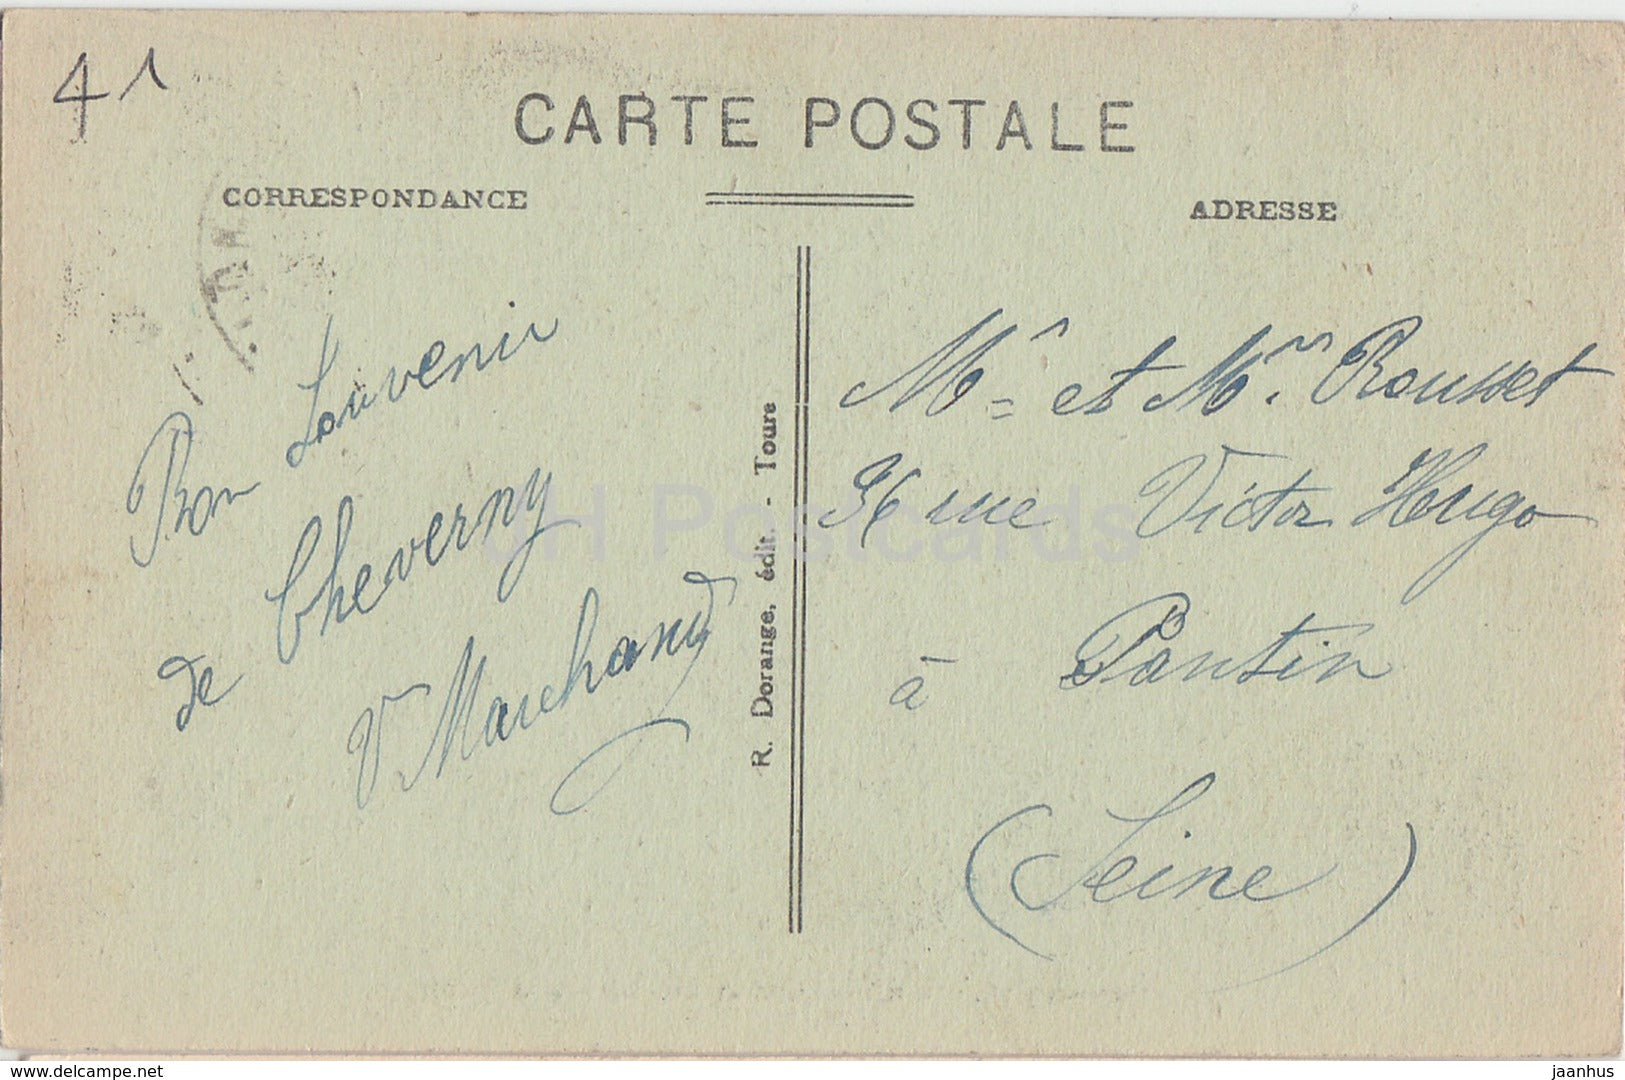 41
CARTE POSTALE
CORRESPONDANCE
ADRESSE
Bon Souvenir
de Cheverny
V Marchand
R. Dorange, édit. - Tours
Mr et Mme Rousset
36 rue Victor Hugo
à Pantin
(Seine)
JH Postcards
delcampe.net
jaanhus